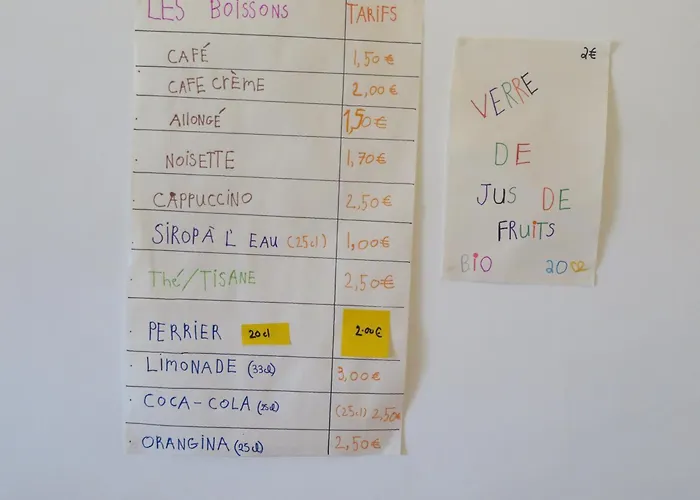 LES BOISSONS TARIFS
CAFÉ 1,50 €
CAFE CRÈME 2,00 €
ALLONGÉ 1,50 €
NOISETTE 1,70 €
CAPPUCCINO 2,50 €
SIROP À L' EAU (25cl) 1,00 €
Thé/TISANE 2,50 €
PERRIER 20cl 2.00 €
LIMONADE (33cl) 3,00 €
COCA-COLA (25cl) (25cl) 2,50€
ORANGINA (25cl) 2,50 €
2€
VERRE
DE
JUS DE
FRUITS
BIO 20 cl